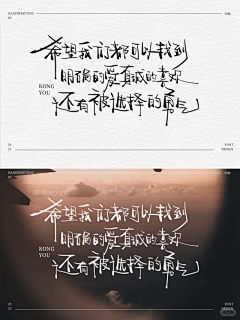 HANDWRITTING
希望我们都可以找到
明确的爱真诚的喜欢
KONG
YOU
还有被选择的勇气
FONT
DESIGN
HANDWRITTING
希望我们都可以找到
明确的爱真诚的喜欢
KONG
YOU
还有被选择的勇气
FONT
DESIGN